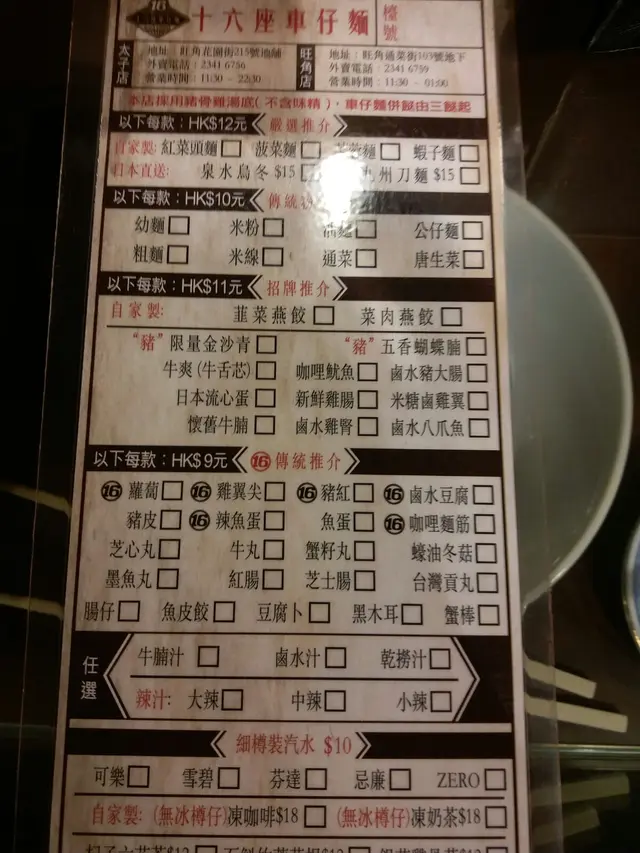 16
十六座車仔麵 檯號
太子店 地址：旺角花園街215號地舖
外賣電話：2341 6756
營業時間：11:30 - 22:30
旺角店 地址：旺角通菜街103號地下
外賣電話：2341 6759
營業時間：11:30 - 01:00
本店採用豬骨雞湯底(不含味精)，車仔麵併餸由三餸起
以下每款：HK$12元 嚴選推介
自家製: 紅菜頭麵 菠菜麵 麵 蝦子麵
日本直送: 泉水烏冬 $15 州刀麵 $15
以下每款：HK$10元 傳統
幼麵 米粉 公仔麵
粗麵 米線 通菜 唐生菜
以下每款：HK$11元 招牌推介
自家製: 韮菜燕餃 菜肉燕餃
“豬”限量金沙青 “豬”五香蝴蝶腩
牛爽(牛舌芯) 咖喱魷魚 鹵水豬大腸
日本流心蛋 新鮮雞腸 米糖鹵雞翼
懷舊牛腩 鹵水雞腎 鹵水八爪魚
以下每款：HK$9元 16 傳統推介
16 蘿蔔 16 雞翼尖 16 豬紅 16 鹵水豆腐
豬皮 16 辣魚蛋 魚蛋 16 咖喱麵筋
芝心丸 牛丸 蟹籽丸 蠔油冬菇
墨魚丸 紅腸 芝士腸 台灣貢丸
腸仔 魚皮餃 豆腐卜 黑木耳 蟹棒
任選 牛腩汁 鹵水汁 乾撈汁
辣汁: 大辣 中辣 小辣
細樽裝汽水 $10
可樂 雪碧 芬達 忌廉 ZERO
自家製: (無冰樽仔)凍咖啡$18 (無冰樽仔)凍奶茶$18